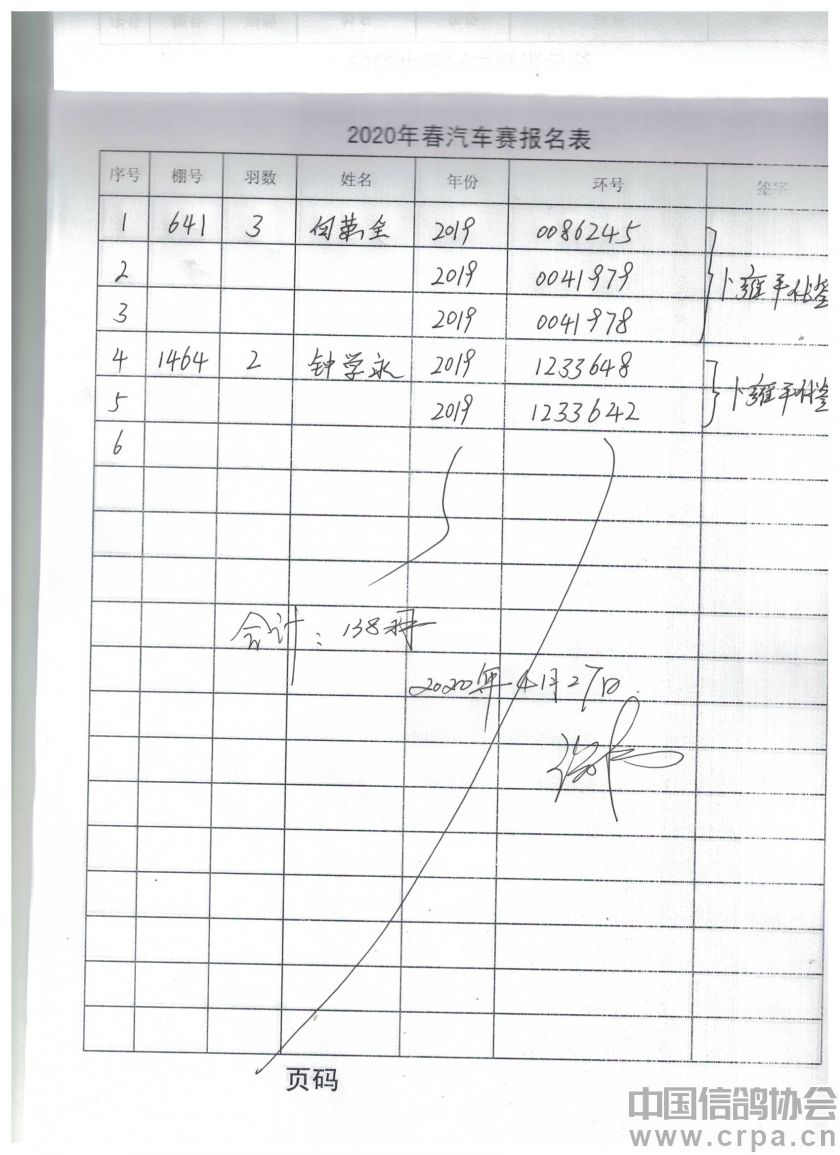 2020年春汽车赛报名表
序号 棚号 羽数 姓名 年份 环号 签字
1 641 3 全 2019 0086245
2 2019 0041979 卜雍平代签
3 2019 0041978
4 1464 2 钟学永 2019 1233648
5 2019 1233642 卜雍平代签
6
合计：138羽
2020年4月27日
页码
中国信鸽协会
www.crpa.cn